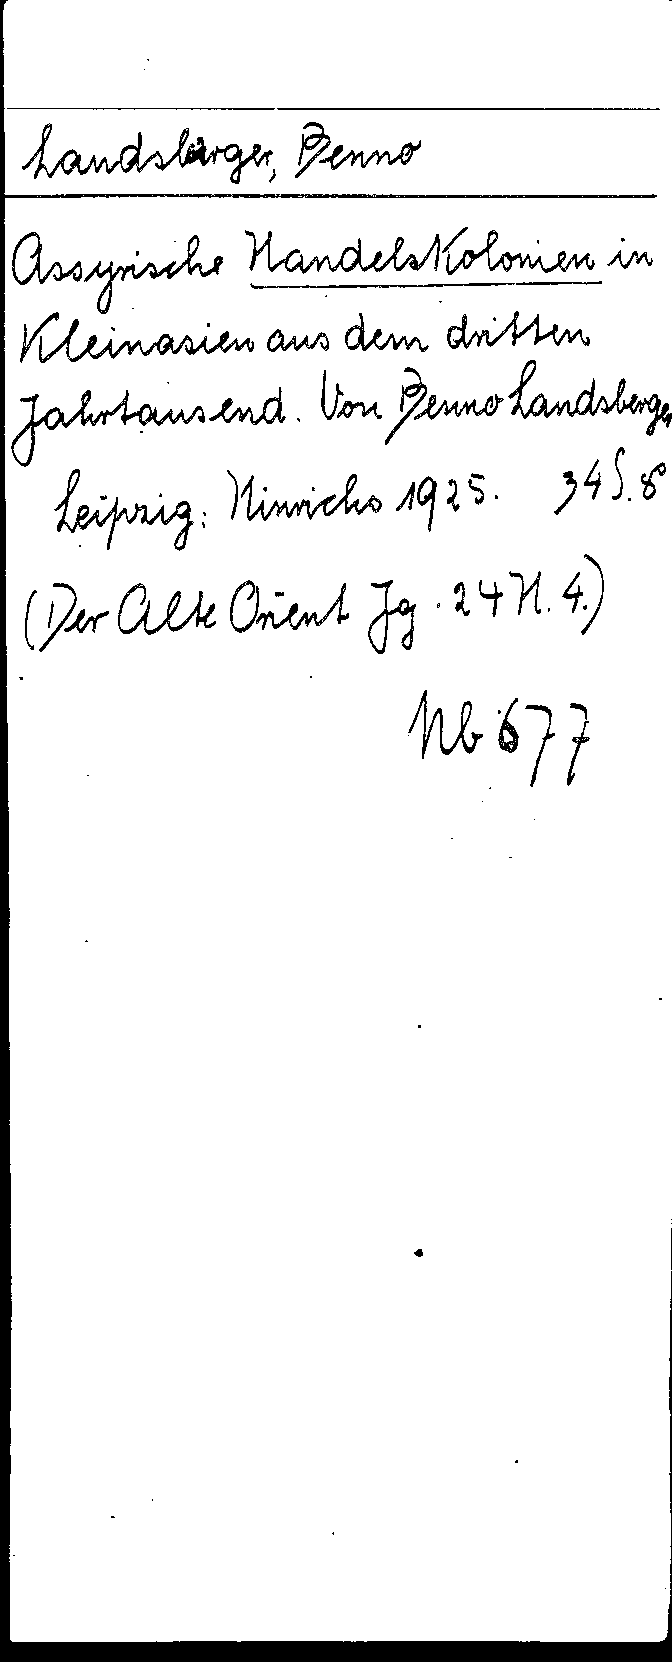 Landsberger, Benno
Assyrische Handelskolonien in
Kleinasien aus dem dritten
Jahrtausend. Von Benno Landsberger
Leipzig: Hinrichs 1925. 34 S. 8°
(Der Alte Orient Jg. 24 H. 4.)
Nb 677